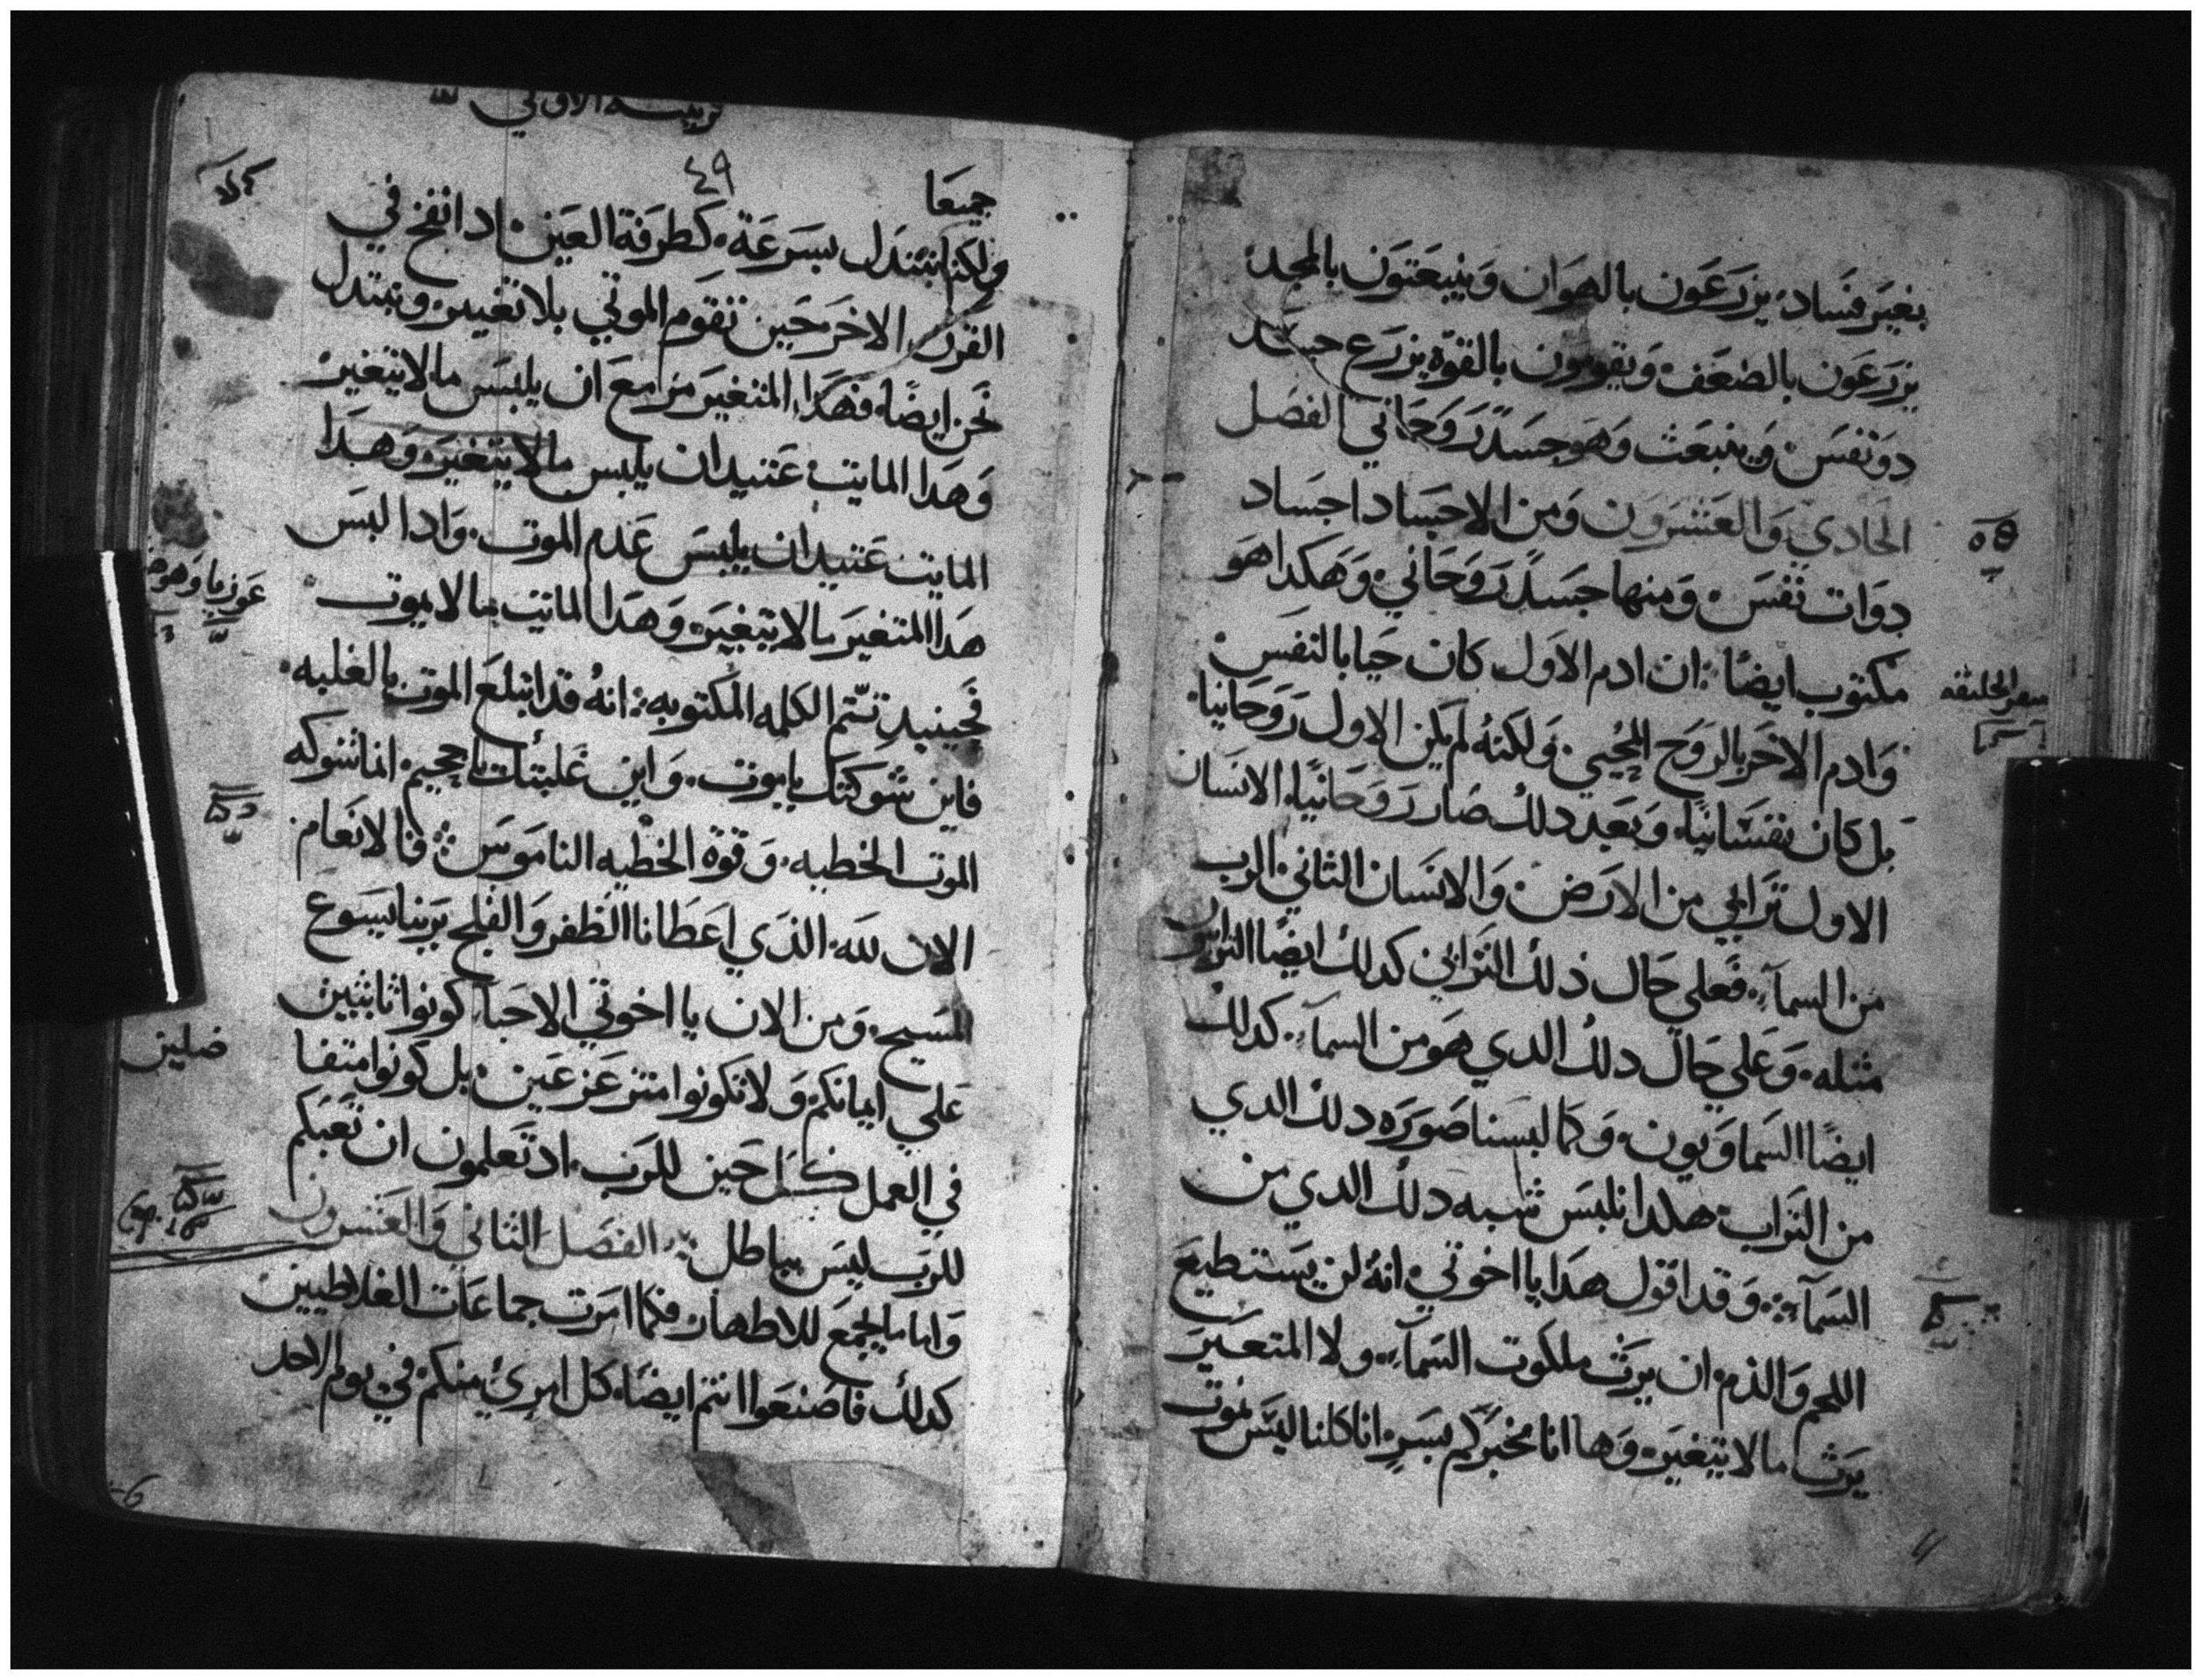 بغير فساد. يزرعون بالهوان وينبعتون بالمجد.
يزرعون بالضعف ويقومون بالقوه يزرع جسد
دو نفس. وينبعث وهو جسد روحاني الفصل
الحادي والعشرون ومن الاجساد اجساد
دوات نفس. ومنها جسد روحاني. وهكدا هو
مكتوب ايضا: ان ادم الاول كان حيا بالنفس
سفر الخليقه
وادم الاخر بالروح المحيي. ولكنه لم يكن الاول روحانيا.
بل كان نفسانيا. وبعد دلك صار روحانيا. الانسان
الاول ترابي من الارض. والانسان الثاني الرب
من السمآء. فعلي حال ذلك الترابي كدلك ايضا الترابيون
مثله. وعلي حال دلك الدي هو من السمآء. كدلك
ايضا السماويون. وكما لبسنا صوره دلك الدي
من التراب. هكدا نلبس شبه دلك الدي من
السمآء. وقد اقول هدا يا اخوتي. انه لن يستطيع
اللحم والدم. ان يرث ملكوت السمآء. ولا المتغير
يرث ما لا يتغير. وها انا مخبركم بسر انا كلنا ليس نموت
٤٩
جميعا
ولكنا نبتدل بسرعة. كطرفة العين. ادا نفخ في
القرن الاخر حين تقوم الموتي بلا تغيير. ونبتدل
نحن ايضا. فهدا المتغير مزامع ان يلبس ما لا يتغير
وهدا المايت عتيد ان يلبس ما لا يتغير. وهدا
المايت عتيد ان يلبس عدم الموت. وادا لبس
هدا المتغير ما لا يتغير. وهدا المايت ما لا يموت
فحينيد تتم الكلمه المكتوبه: انه قد ابتلع الموت بالغلبه.
فاين شوكتك يا موت. واين غلبتك يا جحيم. انما شوكه
الموت الخطيه. وقوة الخطيه الناموس فالانعام
الان لله. الذي اعطانا الظفر والفلج بربنا يسوع
المسيح. ومن الان يا اخوتي الاحبآ كونوا ثابتين
علي ايمانكم. ولا تكونوا متزعزعين. بل كونوا متفا
ضلين
في العمل كل حين للرب. اد تعلمون ان تعبكم
للرب ليس بباطل. الفصل الثاني والعشرون
واما ما يجمع للاطهار. فكما امرت جماعات الغلاطيين
كدلك فاصنعوا انتم ايضا. كل امرئ منكم في يوم الاحد